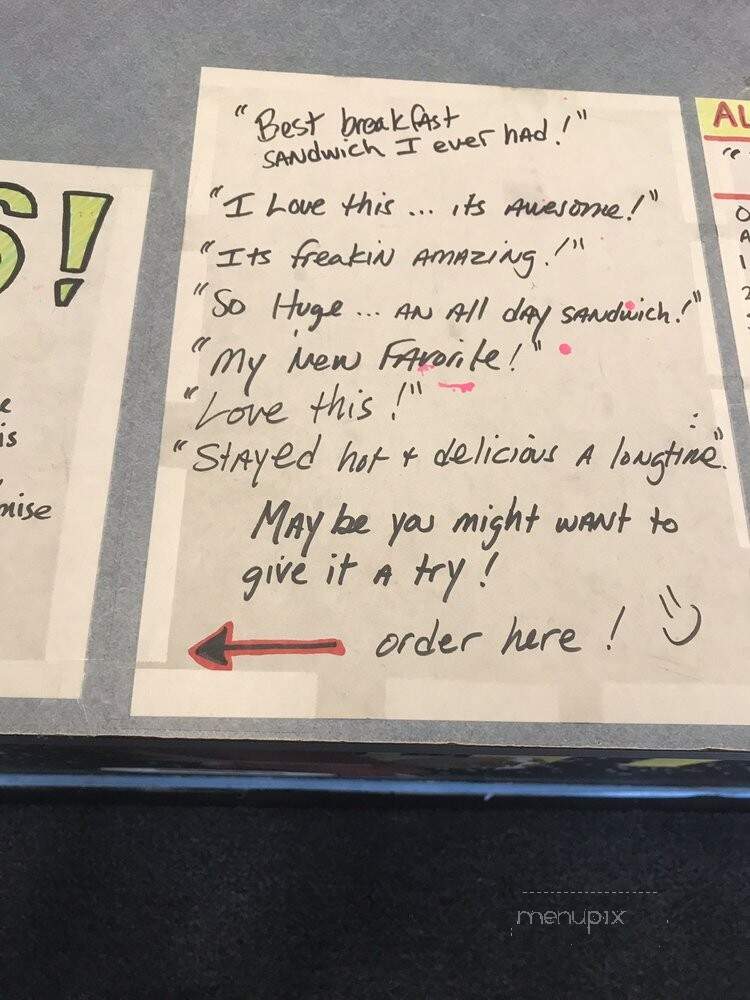 S!
is
mise
"Best breakfast
sandwich I ever had!"
"I Love this... its Awesome!"
"Its freakin AMAZING!"
"So Huge... AN All day sandwich!"
"My New Favorite!"
"Love this!"
"Stayed hot + delicious A longtime."
Maybe you might want to
give it A try!
order here!
AL
menupix